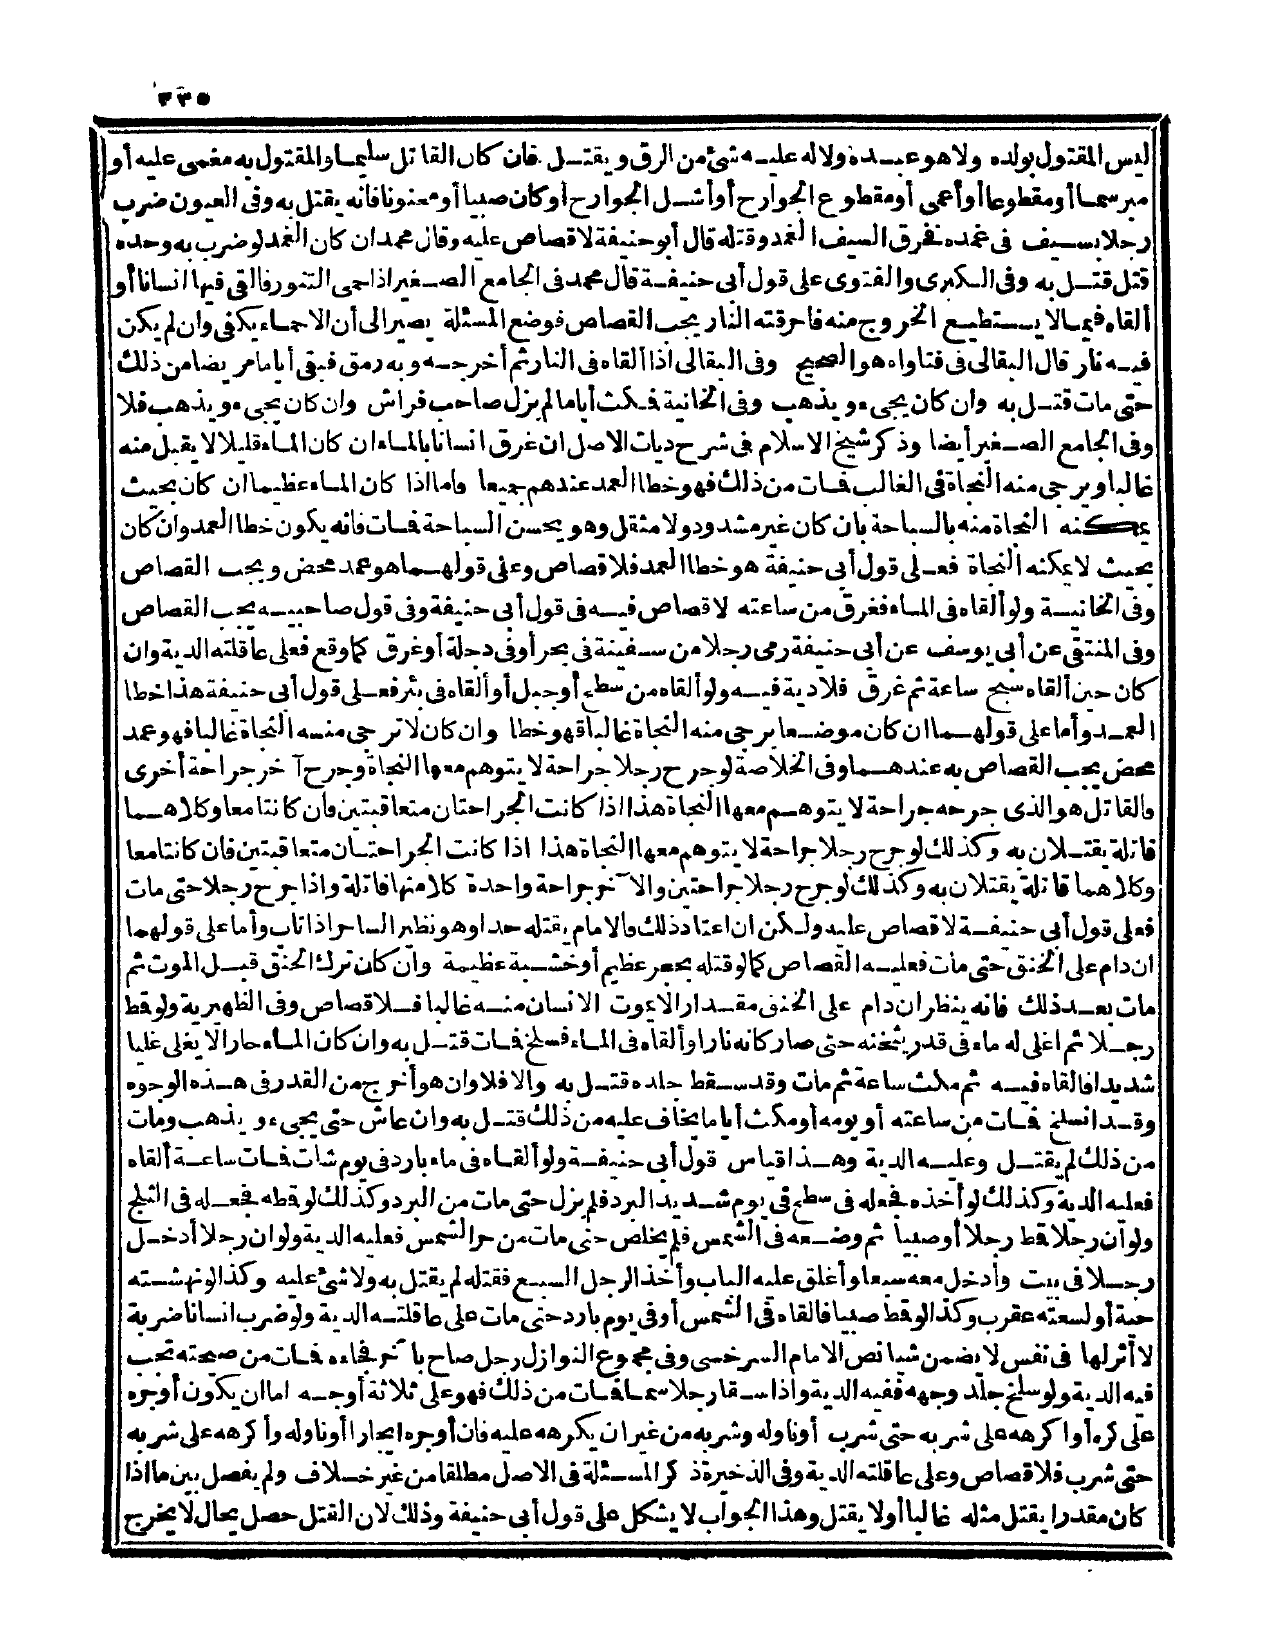 ٣٣٥
ليس المقتول بولده ولا هو عبده ولا له عليه شئ من الرق ويقتل فان كان القاتل سليما والمقتول به مغمى عليه أو
مبرسما أو مقطوعا أو أعمى أو مقطوع الجوارح أو أشل الجوارح أو كان صبيا أو معتونا فانه يقتل به وفى العيون ضرب
رجلا بسيف فى غمده فخرق السيف الغمد وقتله قال أبو حنيفة لا قصاص عليه وقال محمد ان كان الغمد لو ضرب به وحده
قتل قتل به وفى الكبرى والفتوى على قول أبى حنيفة قال محمد فى الجامع الصغير اذا حمى التنور فالقى فيها انسانا أو
ألقاه فيما لا يستطيع الخروج منه فاحرقته النار يجب القصاص فوضع المسئلة يصير الى أن الاحماء يكفى وان لم يكن
فيه نار قال البقالى فى فتاواه هو الصحيح وفى البقالى اذا ألقاه فى النار ثم أخرجه وبه رمق فبقى أياما مريضا من ذلك
حتى مات قتل به وان كان يجىء ويذهب وفى الخانية فمكث أياما لم يزل صاحب فراش وان كان يجىء ويذهب فلا
وفى الجامع الصغير أيضا وذكر شيخ الاسلام فى شرح ديات الاصل ان غرق انسانا بالماء ان كان الماء قليلا لا يقبل منه
غالبا ويرجى منه النجاة فى الغالب فمات من ذلك فهو خطا العمد عندهم جميعا واما اذا كان الماء عظيما ان كان بحيث
يمكنه النجاة منه بالسباحة بان كان غير مشدود ولا مثقل وهو يحسن السباحة فمات فانه يكون خطا العمد وان كان
بحيث لا يمكنه النجاة فعلى قول أبى حنيفة هو خطا العمد فلا قصاص وعلى قولهما هو عمد محض ويجب القصاص
وفى الخانية ولو ألقاه فى الماء فغرق من ساعته لا قصاص فيه فى قول أبى حنيفة وفى قول صاحبيه يجب القصاص
وفى المنتقى عن أبى يوسف عن أبى حنيفة رمى رجلا من سفينة فى بحر أو فى دجلة أو غرق كما وقع فعلى عاقلته الدية وان
كان حين ألقاه سبح ساعة ثم غرق فلا دية فيه ولو ألقاه من سطح أو جبل أو ألقاه فى بئر فعلى قول أبى حنيفة هذا خطا
العمد وأما على قولهما ان كان موضعا يرجى منه النجاة غالبا فهو خطا وان كان لا ترجى منه النجاة غالبا فهو عمد
محض يجب القصاص به عندهما وفى الخلاصة لو جرح رجلا جراحة لا يتوهم معها النجاة وجرح آخر جراحة أخرى
فالقاتل هو الذى جرحه جراحة لا يتوهم معها النجاة هذا اذا كانت الجراحتان متعاقبتين فان كانتا معا وكلاهما
قاتلة يقتلان به وكذلك لو جرح رجلا جراحة لا يتوهم معها النجاة هذا اذا كانت الجراحتان متعاقبتين فان كانتا معا
وكلاهما قاتلة يقتلان به وكذلك لو جرح رجلا جراحتين والآخر جراحة واحدة كلا منها قاتلة واذا جرح رجلا حتى مات
فعلى قول أبى حنيفة لا قصاص عليه ولكن ان اعتاد ذلك فالامام يقتله حدا وهو نظير الساحر اذا تاب وأما على قولهما
ان دام على الخنق حتى مات فعليه القصاص كما لو قتله بحجر عظيم أو خشبة عظيمة وان كان ترك الخنق قبل الموت ثم
مات بعد ذلك فانه ينظر ان دام على الخنق مقدار الا يموت الانسان منه غالبا فلا قصاص وفى الظهيرية ولو قط
رجلا ثم اغلى له ماء فى قدر يثخنه حتى صار كانه نارا وألقاه فى الماء فسلخ فمات قتل به وان كان الماء حارا لا يغلى غليا
شديدا فالقاه فيه ثم مكث ساعة ثم مات وقد سقط جلده قتل به والا فلا وان هو أخرج من القدر فى هذه الوجوه
وقد انسلخ فمات من ساعته أو يومه أو مكث أياما يخاف عليه من ذلك قتل به وان عاش حتى يجىء ويذهب ومات
من ذلك لم يقتل وعليه الدية وهذا قياس قول أبى حنيفة ولو ألقاه فى ماء بارد فى يوم شات فمات ساعة ألقاه
فعليه الدية وكذلك لو أخذه فجعله فى سطح فى يوم شديد البرد فلم يزل حتى مات من البرد وكذلك لو قطه فجعله فى الثلج
ولو أن رجلا قط رجلا أو صبيا ثم وضعه فى الشمس فلم يخلص حتى مات من حر الشمس فعليه الدية ولو ان رجلا أدخل
رجلا فى بيت وأدخل معه سبعا وأغلق عليه الباب وأخذ الرجل السبع فقتله لم يقتل به ولا شئ عليه وكذا لو نهشته
حية أو لسعته عقرب وكذا لو قط صبيا فالقاه فى الشمس أو فى يوم بارد حتى مات على عاقلته الدية ولو ضرب انسانا ضربة
لا أثر لها فى نفس لا يضمن شيا نص الامام السرخسى وفى مجموع النوازل رجل صاح بآخر فجاءه فمات من صيحته يجب
فيه الدية ولو سلخ جلد وجهه ففيه الدية واذا سقا رجلا سما فمات من ذلك فهو على ثلاثة أوجه اما ان يكون أوجره
على كره أو اكرهه على شربه حتى شرب أو ناوله وشربه من غير ان يكرهه عليه فان أوجره ايجارا أو ناوله وأكرهه على شربه
حتى شرب فلا قصاص وعلى عاقلته الدية وفى الذخيرة ذكر المسئلة فى الاصل مطلقا من غير خلاف ولم يفصل بين ما اذا
كان مقدرا يقتل مثله غالبا أو لا يقتل وهذا الجواب لا يشكل على قول أبى حنيفة وذلك لان القتل حصل بحال لا يخرج